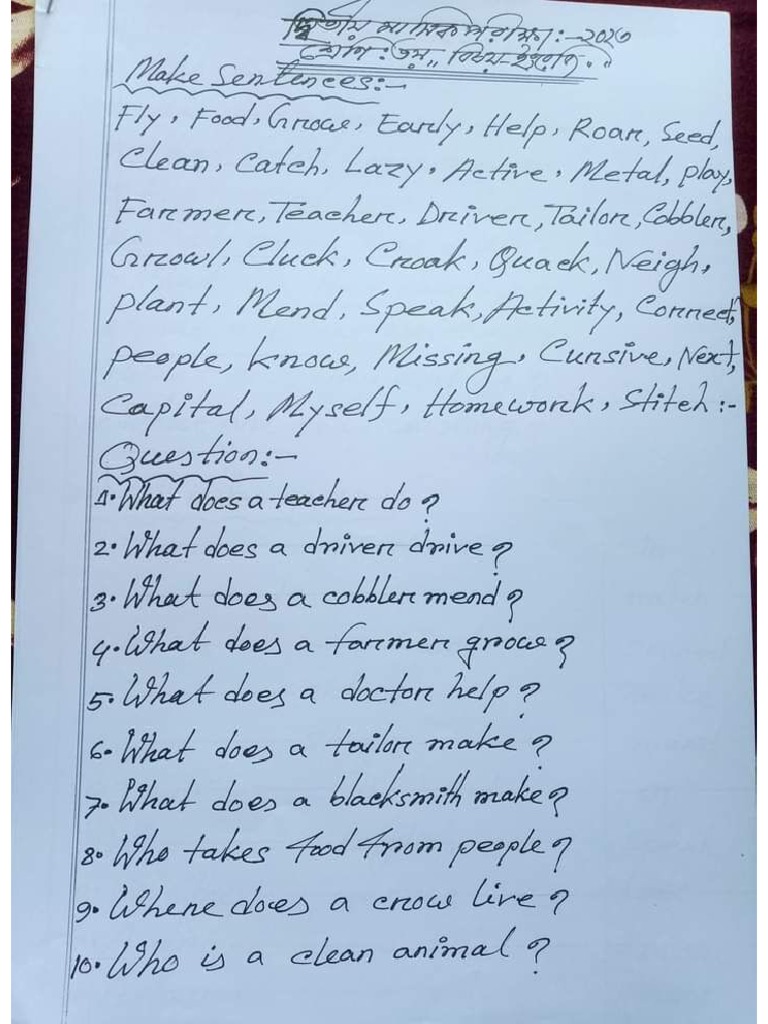 দ্বিতীয় মাসিক পরীক্ষা:-২০২৩
শ্রেণি:৩য়" বিষয়-ইংরেজি."
Make Sentences:-
Fly, Food, Grow, Early, Help, Roar, Seed,
Clean, Catch, Lazy, Active, Metal, play,
Farmer, Teacher, Driver, Tailor, Cobbler,
Growl, Cluck, Croak, Quack, Neigh,
plant, Mend, Speak, Activity, Connect,
people, know, Missing, Cursive, Next,
Capital, Myself, Homework, Stitch:-
Question:-
1. What does a teacher do?
2. What does a driver drive?
3. What does a cobbler mend?
4. What does a farmer grow?
5. What does a doctor help?
6. What does a tailor make?
7. What does a blacksmith make?
8. Who takes food from people?
9. Where does a crow live?
10. Who is a clean animal?